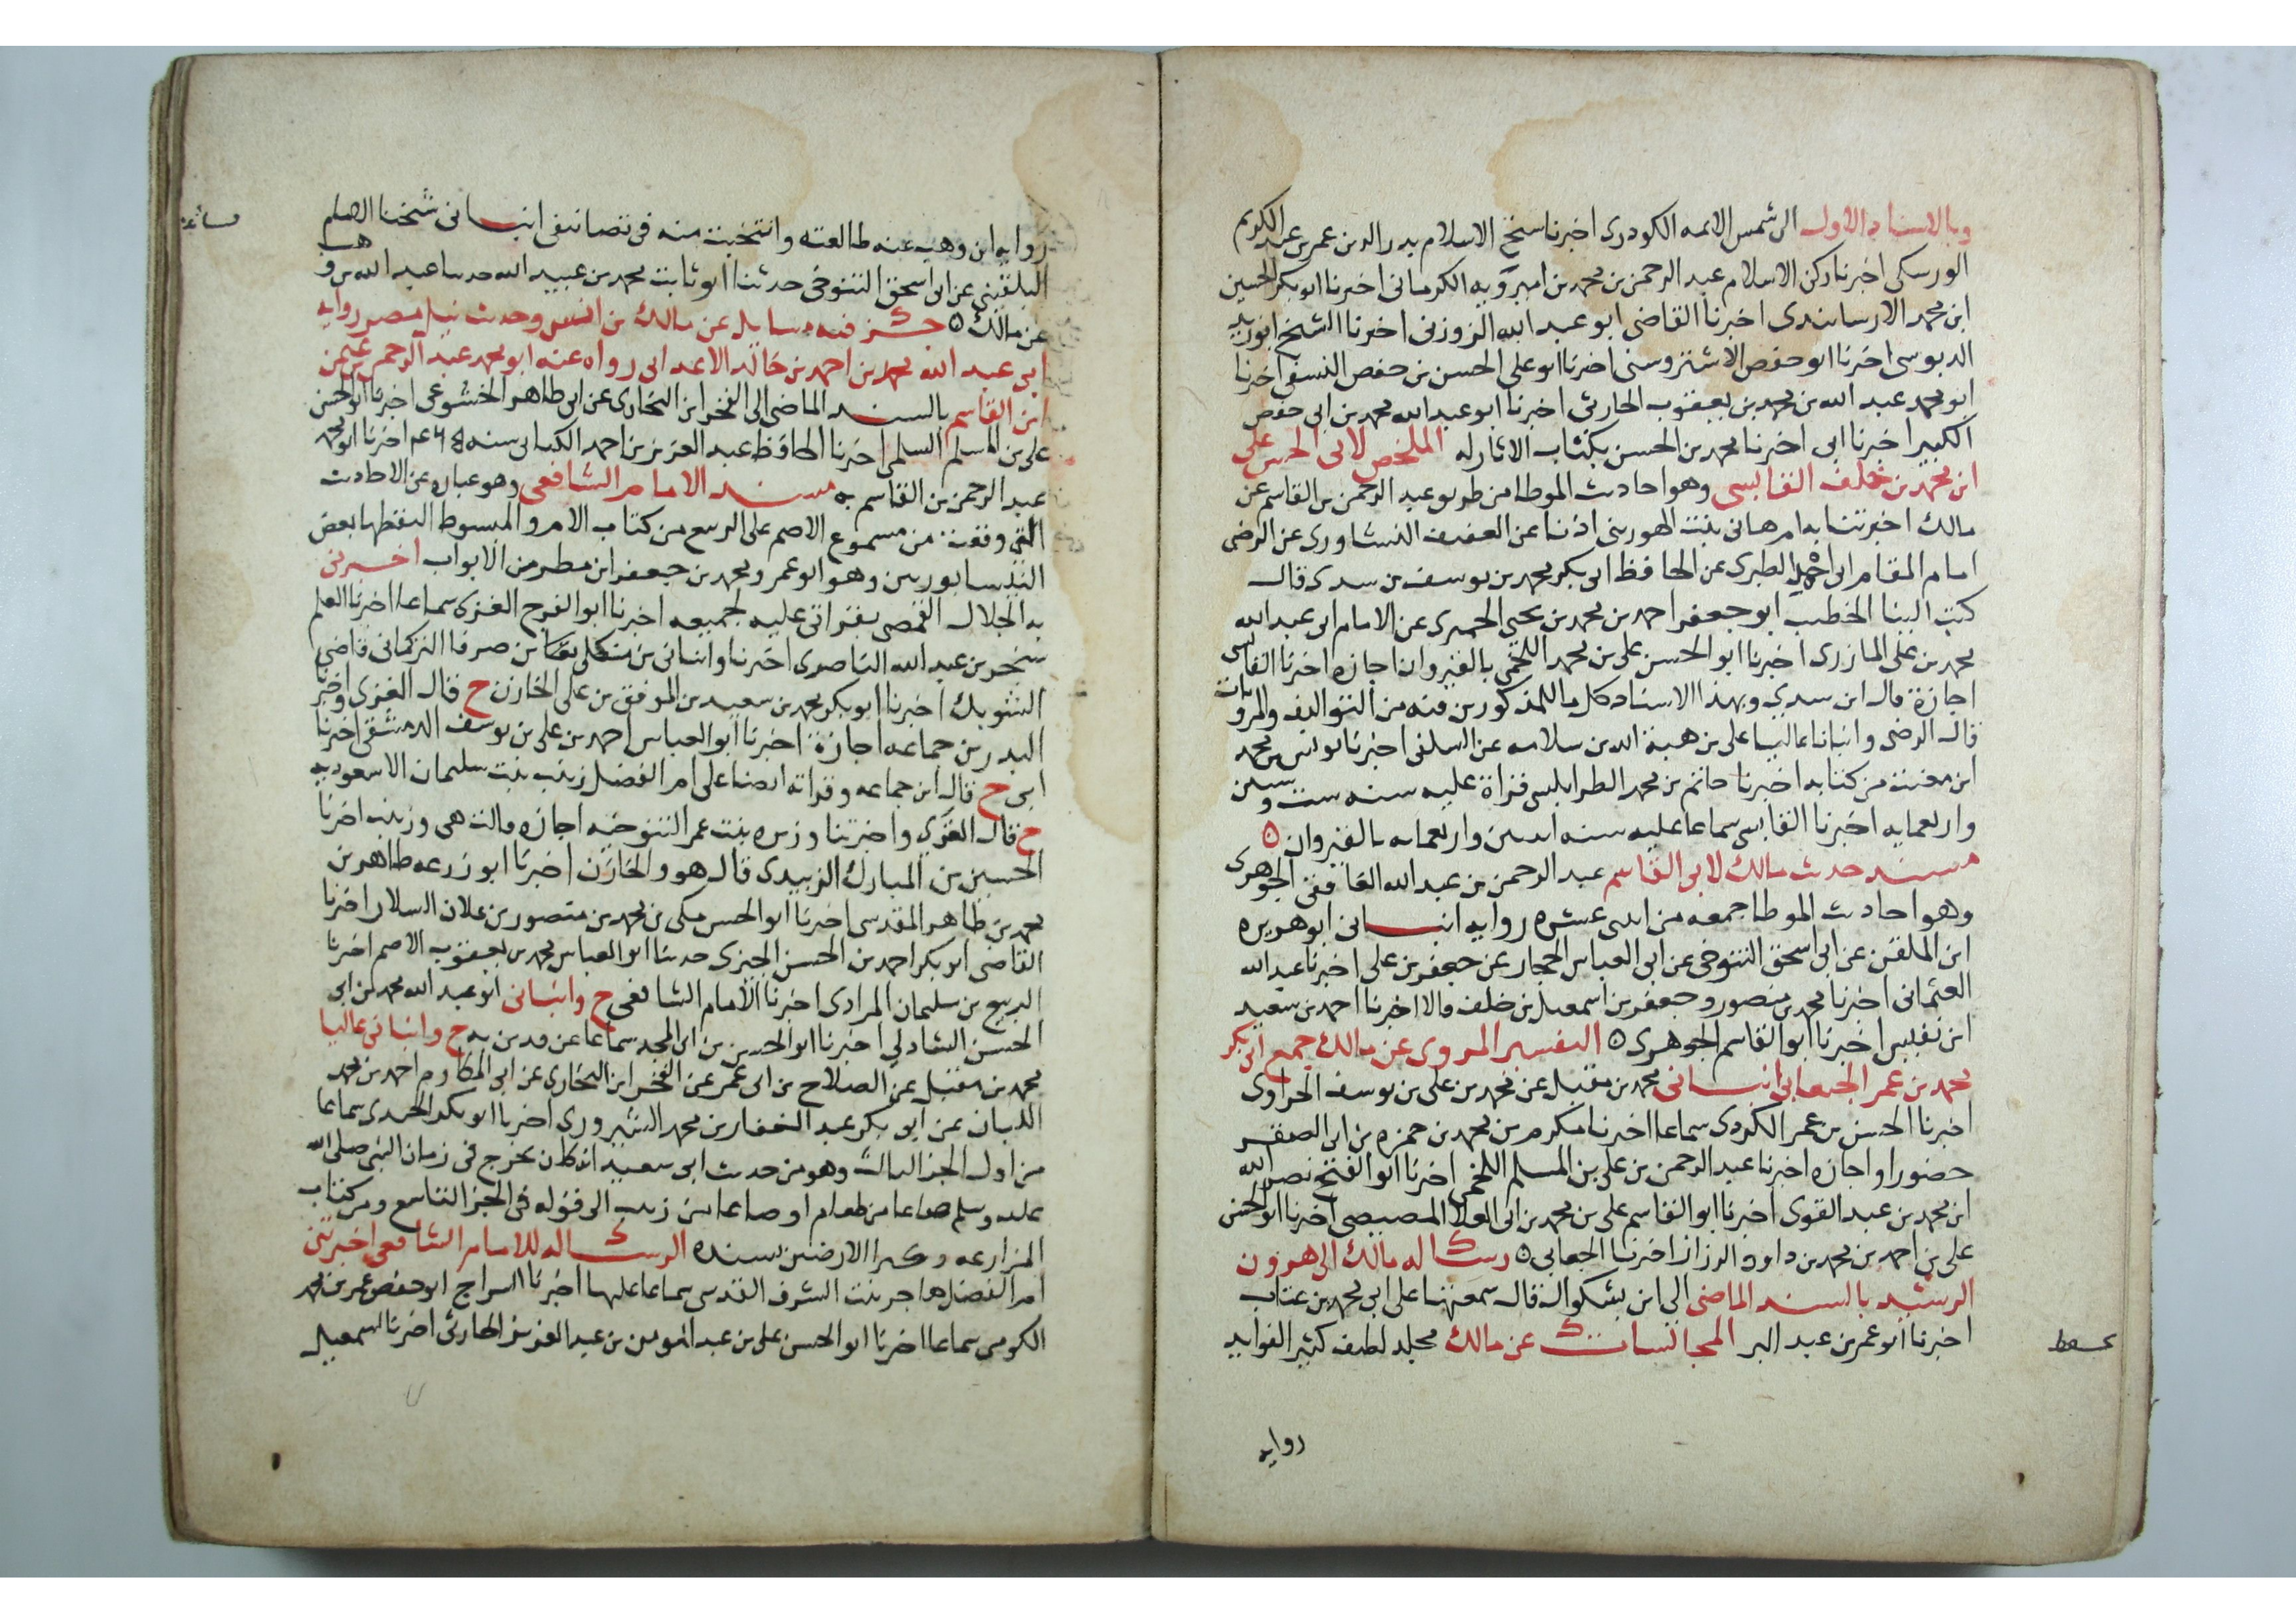 وبالاسناد الاول الى شمس الائمه الكردرى اخبرنا شيخ الاسلام بدر الدين عمر بن عبد الكريم
الورسكى اخبرنا ركن الاسلام عبد الرحمن بن محمد بن اميرويه الكرمانى اخبرنا ابو بكر الحسين
ابن محمد الارسابندى اخبرنا القاضى ابو عبد الله الزوزنى اخبرنا الشيخ ابو زيد
الدبوسى اخبرنا ابو حفص الاشتروسنى اخبرنا ابو على الحسن بن حفص النسفى اخبرنا
ابو محمد عبد الله بن محمد بن يعقوب الحارثى اخبرنا ابو عبد الله محمد بن ابى حفص
الكبير اخبرنا ابى اخبرنا محمد بن الحسن بكتاب الاثار له الملخص لابى الحسن على
ابن محمد بن خلف القابسى وهو احاديث الموطا من طريق عبد الرحمن بن القاسم عن
مالك اخبرتنا به ام هانى بنت الهورينى اذنا عن العفيف النشاورى عن الرضى
امام المقام ابى احمد الطبرى عن الحافظ ابى بكر محمد بن يوسف بن مسدى قال
كتب الينا الخطيب ابو جعفر احمد بن محمد بن يحيى الحميرى عن الامام ابى عبد الله
محمد بن على المازرى اخبرنا ابو الحسن على بن محمد اللخمى بالقيروان اجازه اخبرنا القابسى
اجازة قال ابن مسدى وبهذا الاسناد كل ما للمذكورين فيه من التواليف والمرويات
قال الرضى وانبانا عاليا على بن هبة الله بن سلامه عن السلفى اخبرنا يونس بن محمد
ابن مغيث من كتابه اخبرنا حاتم بن محمد الطرابلسى قراة عليه سنه ست وستين
واربعمايه اخبرنا القابسى سماعا عليه سنه اثنين واربعمايه بالقيروان ٥
مسند حديث مالك لابى القاسم عبد الرحمن بن عبد الله الغافقى الجوهرى
وهو احاديث الموطا جمعه من اثنى عشره روايه انبانى ابو هريره
ابن الملقن عن ابى اسحق التنوخى عن ابى العباس الحجار عن جعفر بن على اخبرنا عبد الله
العثمانى اخبرنا محمد بن منصور وجعفر بن اسمعيل بن خلف قالا اخبرنا احمد بن سعيد
ابن نفيس اخبرنا ابو القاسم الجوهرى ٥ التفسير المروى عن مالك جمع ابى بكر
محمد بن عمر الجعابى انبانى محمد بن مقبل عن محمد بن على بن يوسف الحراوى
اخبرنا الحسن بن عمر الكردى سماعا اخبرنا مكرم بن محمد بن حمزه بن ابى الصقر
حضورا واجازه اخبرنا عبد الرحمن بن على بن المسلم اللخمى اخبرنا ابو الفتح نصر الله
ابن محمد بن عبد القوى اخبرنا ابو القاسم على بن محمد بن ابى العلا المصيصى اخبرنا ابو الحسن
على بن احمد بن محمد بن داود الرزاز اخبرنا الجعابى ٥ رسالة مالك الى هرون
الرشيد بالسند الماضى الى ابن بشكوال قال سمعتها على ابى محمد بن عتاب
اخبرنا ابو عمر بن عبد البر المجالسات عن مالك مجلد لطيف كثير الفوايد
روايه
روايه ابن وهب عنه طالعته وانتخبت منه فى تصانيفى انبانى شيخنا العلم
البلقينى عن ابى اسحق التنوخى حدثنا ابو ثابت محمد بن عبيد الله حدثنا عبد الله بن وهب
عن مالك ٥ جزء فيه مسايل عن مالك بن انس وحديث نيل مصر روايه
ابى عبد الله محمد بن احمد بن خالد الاعدالى رواه عنه ابو محمد عبد الرحمن بن عثمن
ابن القاسم بالسند الماضى الى الفخر ابن البخارى عن ابى طاهر الخشوعى اخبرنا ابو الحسن
على بن المسلم السلمى اخبرنا الحافظ عبد العزيز بن احمد الكتانى سنه اخبرنا ابو محمد
عبد الرحمن بن القاسم به مسند الامام الشافعى وهو عباره عن الاحاديث
التى وقعت من مسموع الاصم على الربيع من كتاب الام والمبسوط التقطها بعض
النيسابوريين وهو ابو عمرو محمد بن جعفر ابن مطر من الابواب اخبرنى
به الجلال القمصى بقراتى عليه لجميعه اخبرنا ابو الفرج الغزى سماعا اخبرنا العلم
سنجر بن عبد الله الناصرى اخبرنا وانبانى بن منكلى بغا بن صرفا التركمانى قاضى
الشوبك اخبرنا ابو بكر محمد بن سعيد بن الموفق بن على الخازن ح قال الغزى واخبرنا
البدر بن جماعه اجازة اخبرنا ابو العباس احمد بن على بن يوسف الدمشقى اخبرنا
ابى ح قال ابن جماعه وقراته ايضا على ام الفضل زينب بنت سليمان الاسعوديه
ح قال الغزى واخبرتنا وزيره بنت عمر التنوخيه اجازه قالت هى وزينب اخبرنا
الحسين بن المبارك الزبيدى قال هو والخازن اخبرنا ابو زرعه طاهر بن
محمد بن طاهر المقدسى اخبرنا ابو الحسن مكى بن محمد بن منصور بن علان السلار اخبرنا
القاضى ابو بكر احمد بن الحسن الحيرى حدثنا ابو العباس محمد بن يعقوب الاصم اخبرنا
الربيع بن سليمان المرادى اخبرنا الامام الشافعى ح وانبانى ابو عبد الله محمد بن ابى
الحسن الشاذلى اخبرنا ابو الحسن بن ابى المجد سماعا عن وزيره به ح وانبانى عاليا
محمد بن مقبل عن الصلاح بن ابى عمر عن الفخر ابن البخارى عن ابى المكارم احمد بن محمد
اللبان عن ابو بكر عبد الغفار بن محمد الشيروى اخبرنا ابو بكر الحيرى سماعا
من اول الجز الثالث وهو من حديث ابى سعيد انه كان يخرج فى زمان النبى صلى الله
عليه وسلم صاعا من طعام او صاعا من زبيب الى قوله فى الجز التاسع ومن كتاب
المزارعه وكرا الارضين بسنده الرسالة للامام الشافعى اخبرتنى
ام الفضل هاجر بنت الشرف القدسى سماعا عليها اخبرنا السراج ابو حفص عمر بن محمد
الكومى سماعا اخبرنا ابو الحسن على بن عبد المومن بن عبد العزيز الحارثى اخبرنا اسمعيل